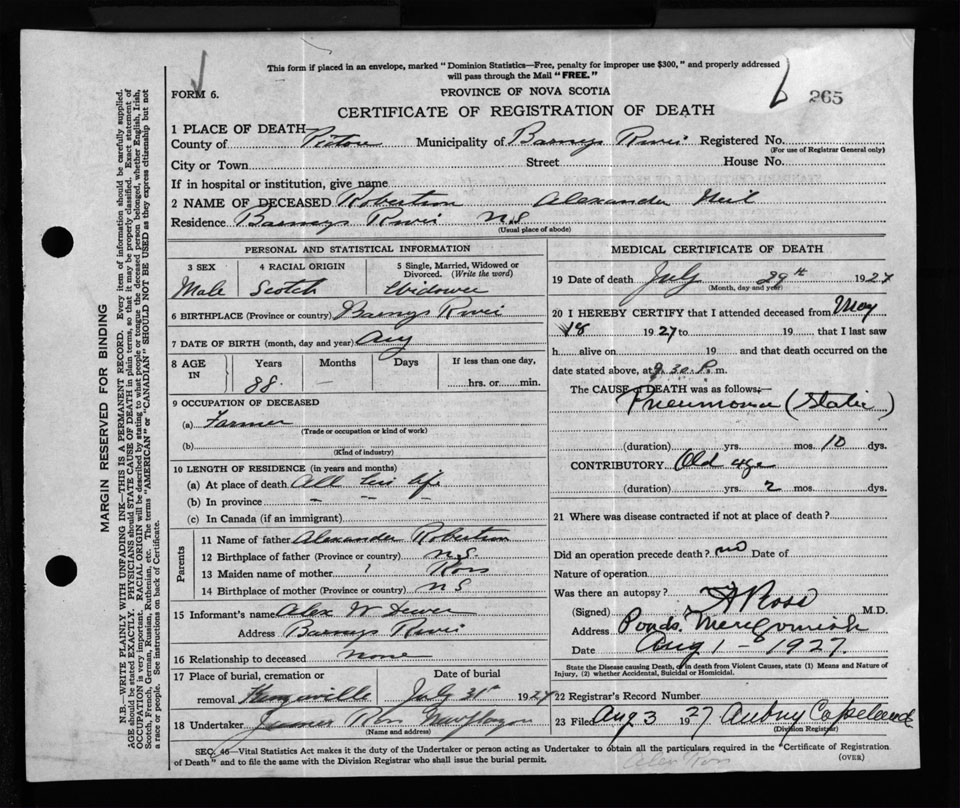 This form if placed in an envelope, marked "Dominion Statistics—Free, penalty for improper use $300," and properly addressed
will pass through the Mail "FREE."
FORM 6.
PROVINCE OF NOVA SCOTIA
6 265
CERTIFICATE OF REGISTRATION OF DEATH
1 PLACE OF DEATH
County of Pictou Municipality of Barneys River Registered No.
(For use of Registrar General only)
City or Town Street House No.
If in hospital or institution, give name
2 NAME OF DECEASED Robertson Alexander Neil
Residence Barneys River N.S.
(Usual place of abode)
PERSONAL AND STATISTICAL INFORMATION
3 SEX 4 RACIAL ORIGIN 5 Single, Married, Widowed or Divorced. (Write the word)
Male Scotch Widower
6 BIRTHPLACE (Province or country) Barneys River
7 DATE OF BIRTH (month, day and year) Aug
8 AGE IN Years Months Days If less than one day,
88 – hrs. or min.
9 OCCUPATION OF DECEASED
(a) Farmer
(Trade or occupation or kind of work)
(b)
(Kind of industry)
10 LENGTH OF RESIDENCE (in years and months)
(a) At place of death All his life
(b) In province – – –
(c) In Canada (if an immigrant)
Parents
11 Name of father Alexander Robertson
12 Birthplace of father (Province or country) N.S.
13 Maiden name of mother ? Ross
14 Birthplace of mother (Province or country) N S
15 Informant's name Alex W Dewar
Address Barneys River
16 Relationship to deceased none
17 Place of burial, cremation or Date of burial
removal Kenzieville July 31st 1927
18 Undertaker James Ross New Glasgow
(Name and address)
MEDICAL CERTIFICATE OF DEATH
19 Date of death July 29th 1927
(Month, day and year)
20 I HEREBY CERTIFY that I attended deceased from May
18 1927 to 19 that I last saw
h alive on 19 and that death occurred on the
date stated above, at 9.30 P. m.
The CAUSE OF DEATH was as follows:—
Pneumonia (Static)
(duration) yrs. mos. 10 dys.
CONTRIBUTORY Old age
(duration) yrs. 2 mos. dys.
21 Where was disease contracted if not at place of death?
Did an operation precede death? no Date of
Nature of operation
Was there an autopsy?
(Signed) Rose M.D.
Address Ponds, Merigomish
Date Aug 1 – 1927.
State the Disease causing Death, or in death from Violent Causes, state (1) Means and Nature of
Injury, (2) whether Accidental, Suicidal or Homicidal.
22 Registrar's Record Number
23 Filed Aug 3 1927 Aubrey Copeland
(Division Registrar)
SEC. 46—Vital Statistics Act makes it the duty of the Undertaker or person acting as Undertaker to obtain all the particulars required in the "Certificate of Registration
of Death" and to file the same with the Division Registrar who shall issue the burial permit.
(OVER)
Alex Ross
MARGIN RESERVED FOR BINDING
N.B.—WRITE PLAINLY WITH UNFADING INK—THIS IS A PERMANENT RECORD. Every item of information should be carefully supplied.
AGE should be stated EXACTLY. PHYSICIANS should STATE CAUSE OF DEATH in plain terms, so that it may be properly classified. Exact statement of
OCCUPATION is very important. RACIAL ORIGIN will be described by stating to what people or tongue the deceased person belonged, whether English, Irish,
Scotch, French, German, Russian, Ruthenian, etc. The terms "AMERICAN" or "CANADIAN" SHOULD NOT BE USED as they express citizenship but not
a race or people. See instructions on back of Certificate.